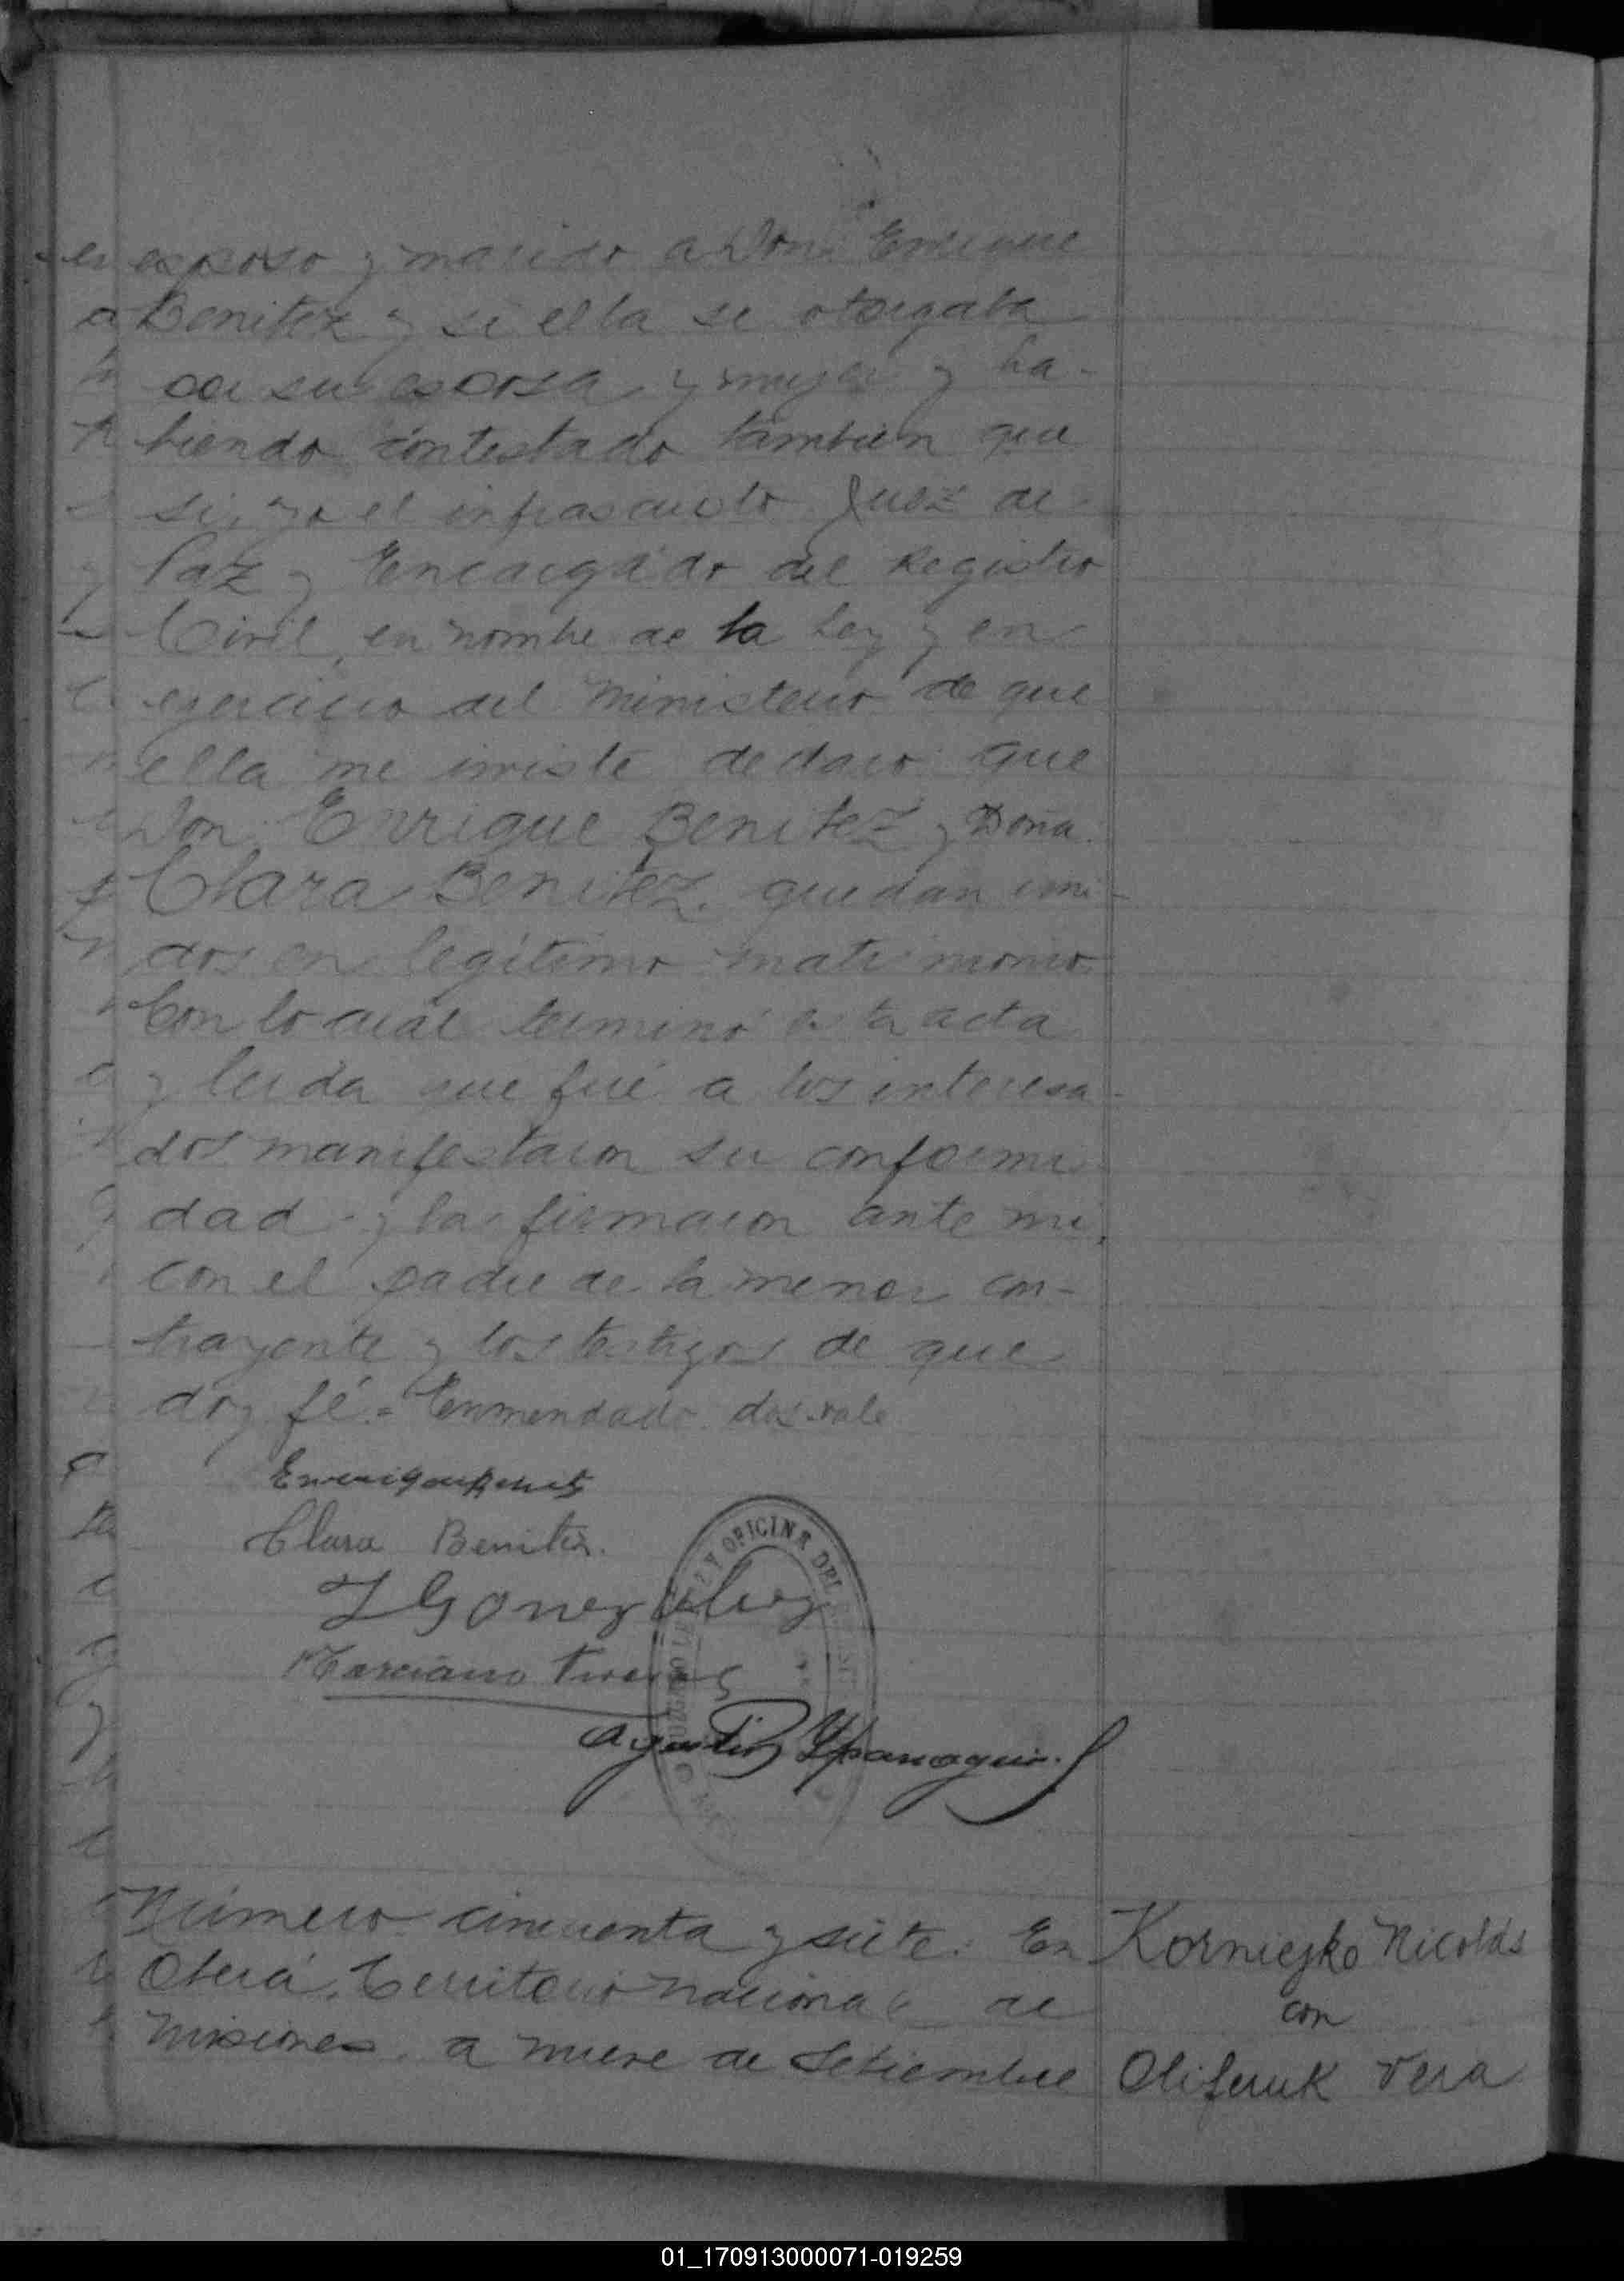 esposo y marido a Don Enrique
Benitez y si ella se otorgaba
por su esposa y mujer y ha-
biendo contestado tambien que
si, yo el infrascristo Juez de
Paz y Encargado del Registro
Civil, en nombre de la Ley y en
ejercicio del ministerio de que
ella me inviste declaro que
Don Enrique Benitez y Doña
Clara Benitez quedan uni-
dos en legítimo matrimonio
Con lo cual terminó esta acta
y leida que fué a los interesa-
dos manifestaron su conformi
dad y la firmaron ante mi,
con el padre de la menor con-
trayente y los testigos de que
doy fé.= Enmendado dos vale
Enrique Benitz
Clara Benitez.
Marciano
Agustin
Y OFICINA DEL
Número cincuenta y siete: En
Oberá, Territorio Nacional de
Misiones, a nueve de Setiembre
Korniejko Nicolás
con
Oliferuk Vera
01_170913000071-019259